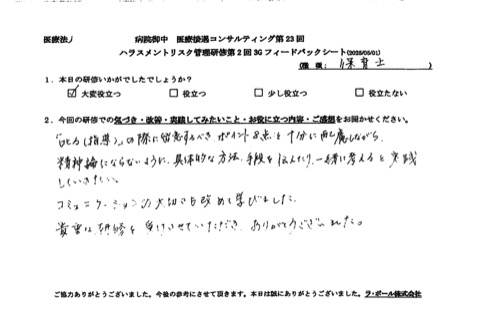 医療法人 病院御中 医療接遇コンサルティング第23回
ハラスメントリスク管理研修第2回3Gフィードバックシート(2025/05/01)
(職種: 保育士 )
1．本日の研修いかがでしたでしょうか？
☑ 大変役立つ □ 役立つ □ 少し役立つ □ 役立たない
2．今回の研修での気づき・改善・実践してみたいこと・お役に立つ内容・ご感想をお聞かせください。
「叱る(指導)」の際に留意するべきポイント8点を十分に配慮しながら、
精神論にならないように、具体的な方法、手段を伝えたり、一緒に考えると実践
していきたい。
コミュニケーションの大切さを改めて学びました。
貴重な研修を受けさせていただき、ありがとうございました。
ご協力ありがとうございました。今後の参考にさせて頂きます。本日は誠にありがとうございました。ラ・ポール株式会社